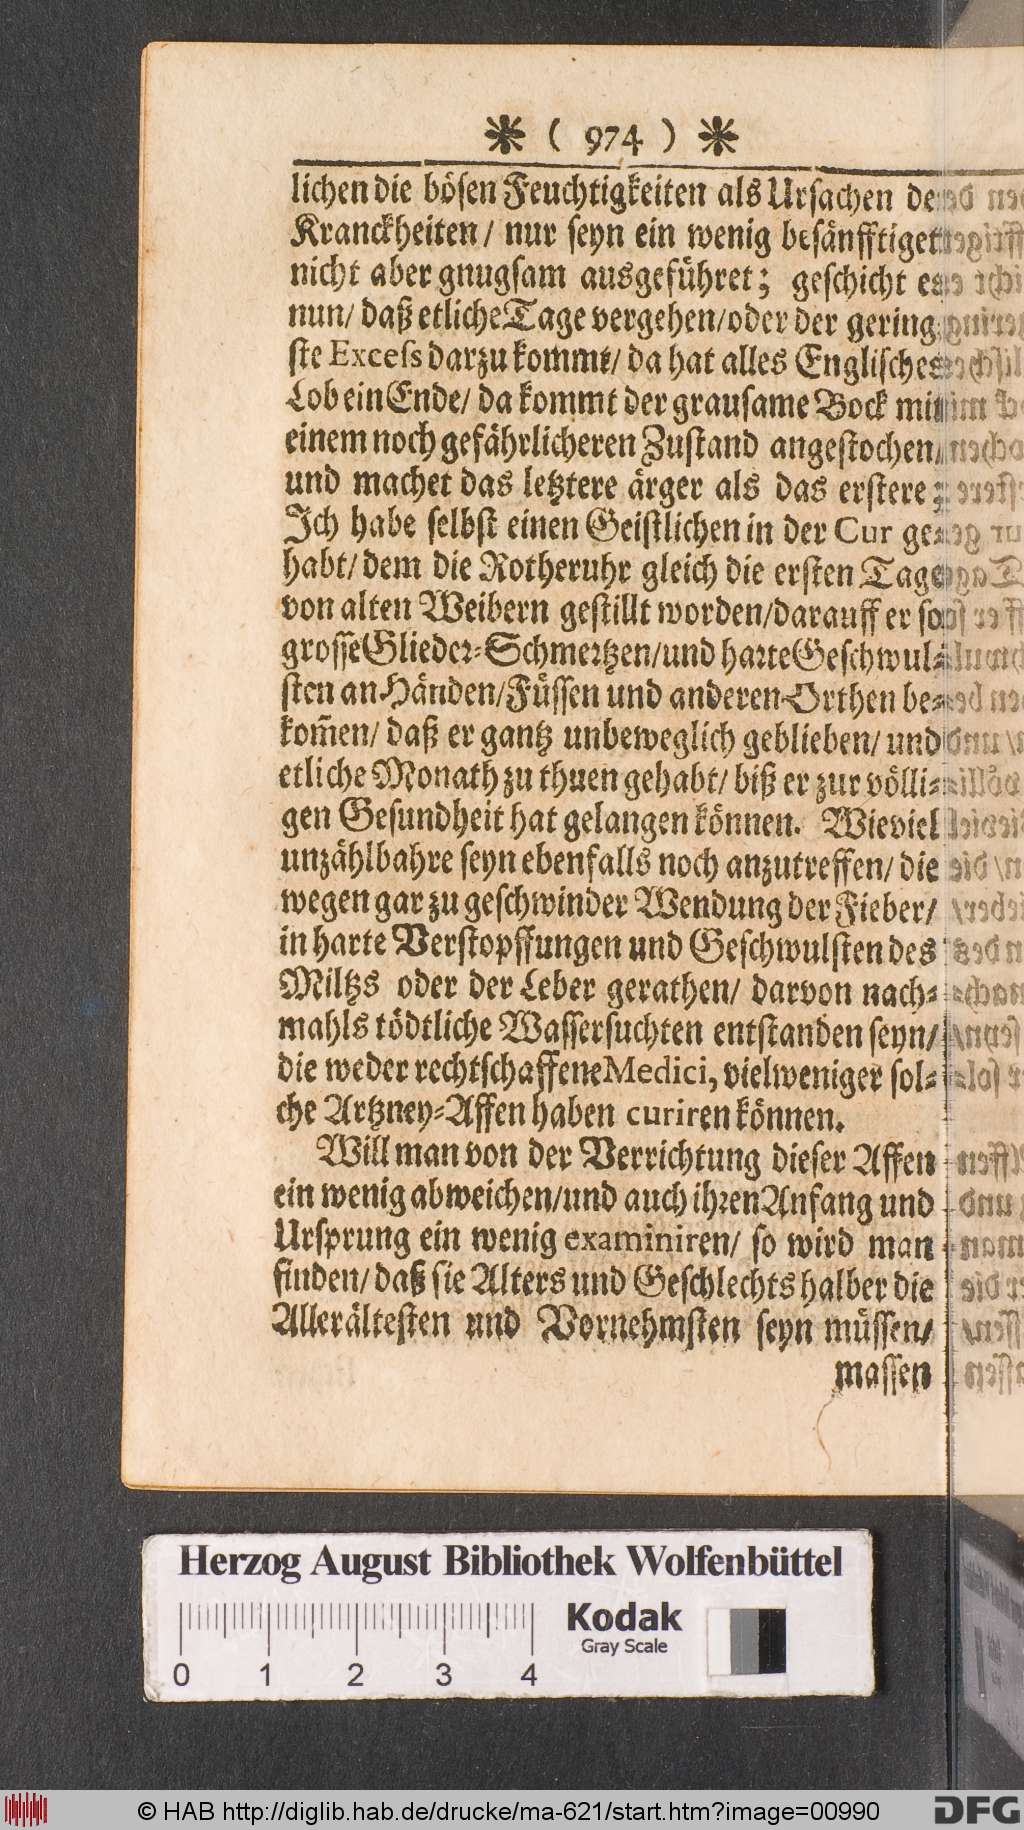 ❋ ( 974 ) ❋
lichen die bösen Feuchtigkeiten als Ursachen der
Kranckheiten/ nur seyn ein wenig besänfftiget
nicht aber gnugsam ausgeführet; geschicht es
nun/ daß etliche Tage vergehen/oder der gering
ste Excess darzu kommt/ da hat alles Englische
Lob ein Ende/ da kommt der grausame Bock mit
einem noch gefährlicheren Zustand angestochen/
und machet das letztere ärger als das erstere;
Ich habe selbst einen Geistlichen in der Cur ge-
habt/ dem die Rotheruhr gleich die ersten Tage
von alten Weibern gestillt worden/darauff er so
grosse Glieder-Schmertzen/und harte Geschwul-
sten an Händen/Füssen und anderen Orthen be-
kom̃en/ daß er gantz unbeweglich geblieben/ und
etliche Monath zu thuen gehabt/ biß er zur völli-
gen Gesundheit hat gelangen können. Wieviel
unzählbahre seyn ebenfalls noch anzutreffen/ die
wegen gar zu geschwinder Wendung der Fieber/
in harte Verstopffungen und Geschwulsten des
Miltzs oder der Leber gerathen/ darvon nach-
mahls tödtliche Wassersuchten entstanden seyn/
die weder rechtschaffene Medici, vielweniger sol-
che Artzney-Affen haben curiren können.
Will man von der Verrichtung dieser Affen
ein wenig abweichen/und auch ihren Anfang und
Ursprung ein wenig examiniren/ so wird man
finden/ daß sie Alters und Geschlechts halber die
Allerältesten und Vornehmsten seyn müssen/
massen
Herzog August Bibliothek Wolfenbüttel
Kodak
Gray Scale
0 1 2 3 4
© HAB http://diglib.hab.de/drucke/ma-621/start.htm?image=00990
DFG